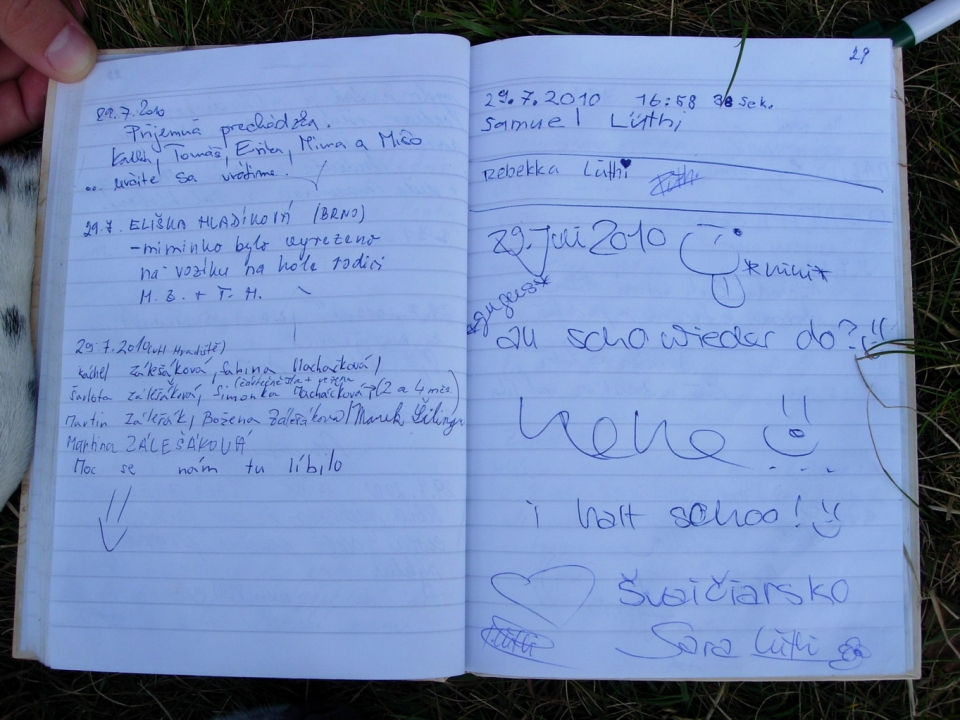 29.7.2010
Príjemná prechádzka.
Tomáš, Erika, Mirna a Mišo
... určite sa vrátime.
29.7. ELIŠKA HLADÍKOVÁ (BRNO)
- miminko bylo vyvezeno
na vozíku na kole rodiči
M. Z. + T. H.
29.7.2010 (Uh Hradiště)
Ráchel Zálešáková, Sabina Macháčková,
Šarlota Zálešáková, Simonka Macháčková → (2 a 4 měs.)
Martin Zálešák, Božena Zálešáková, Marek
Martina ZÁLEŠÁKOVÁ
Moc se nám tu líbilo
29
29.7.2010 16:58 38 sek.
Samuel Lüthi
Rebekka Lüthi
29. Juli 2010
*hihi*
au scho wieder do?
hehe
i halt schoo!
Švaičiarsko
Sara Lüthi